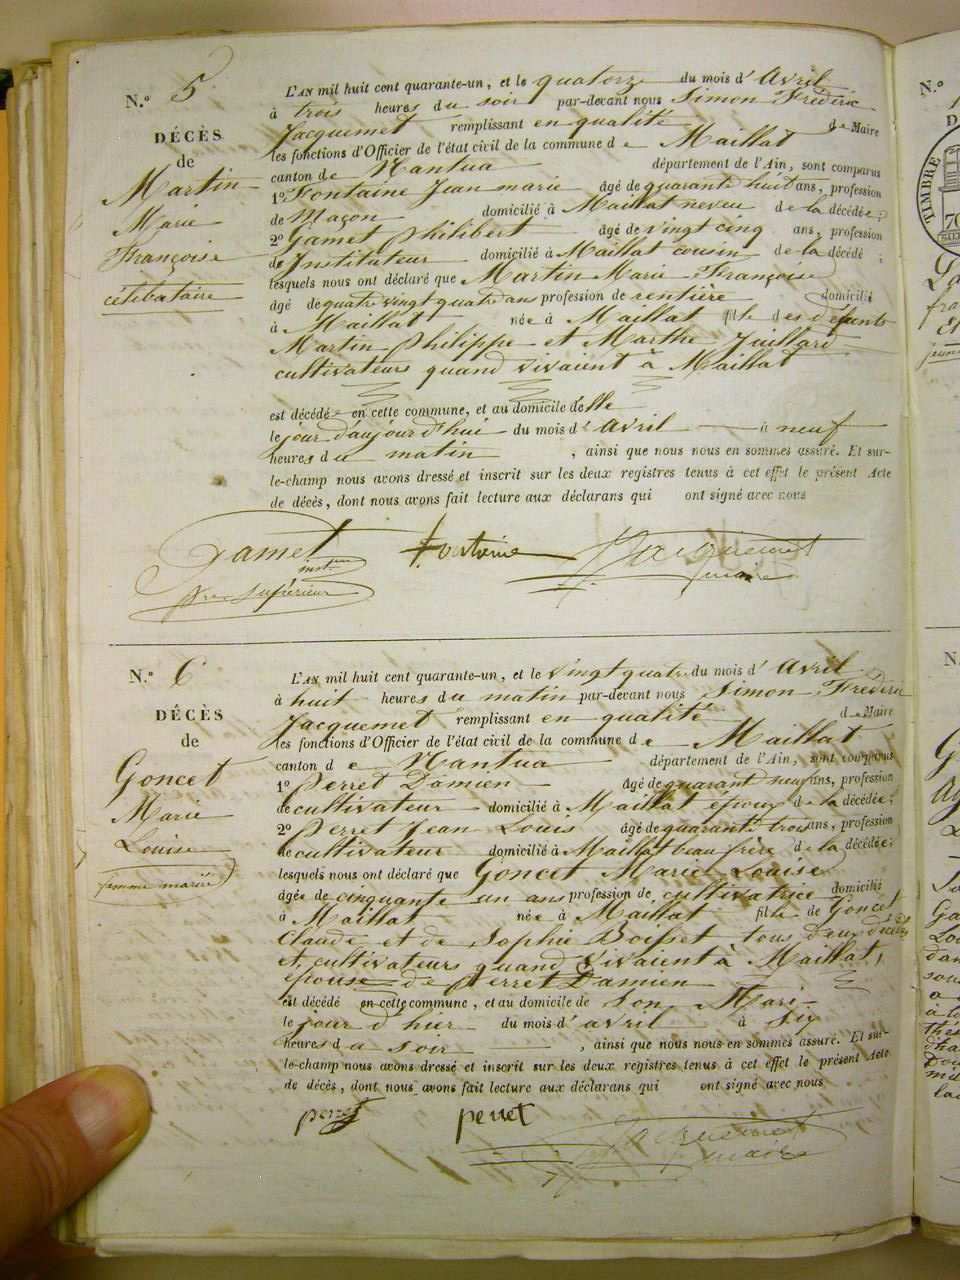 N.° 5
DÉCÈS
de
Martin
Marie
Françoise
célibataire
L'AN mil huit cent quarante-un, et le quatorze du mois d' Avril
à trois heures du soir par-devant nous Simon Frédéric
Jacquemet remplissant en qualité de Maire
les fonctions d'Officier de l'état civil de la commune de Maillat
canton de Nantua département de l'Ain, sont comparus
1° Fontaine Jean marie âgé de quarante huit ans, profession
de Maçon domicilié à Maillat neveu de la décédée;
2° Gamet Philibert âgé de vingt cinq ans, profession
de Instituteur domicilié à Maillat cousin de la décédé ;
lesquels nous ont déclaré que Martin Marie Françoise
âgé de quatre vingt quatre ans profession de rentière domicilié
à Maillat née à Maillat fille des défunts
Martin Philippe et Marthe Juillard
cultivateurs quand vivaient à Maillat
est décédé en cette commune, et au domicile d'elle
le jour d'aujourd'hui du mois d' avril à neuf
heures du matin , ainsi que nous nous en sommes assuré. Et sur-
le-champ nous avons dressé et inscrit sur les deux registres tenus à cet effet le présent Acte
de décès, dont nous avons fait lecture aux déclarans qui ont signé avec nous
Gamet Fontaine Jacquemet
inst.
supérieur maire
N.° 6
DÉCÈS
de
Goncet
Marie
Louise
femme mariée
L'AN mil huit cent quarante-un, et le vingt quatre du mois d' Avril
à huit heures du matin par-devant nous Simon Frédéric
Jacquemet remplissant en qualité de Maire
les fonctions d'Officier de l'état civil de la commune de Maillat
canton de Nantua département de l'Ain, sont comparus
1° Perret Damien âgé de quarant neuf ans, profession
de cultivateur domicilié à Maillat époux de la décédée;
2° Perret Jean Louis âgé de quarante trois ans, profession
de cultivateur domicilié à Maillat beau frère de la décédée;
lesquels nous ont déclaré que Goncet Marie Louise
âgée de cinquante un ans profession de cultivatrice domicilié
à Maillat née à Maillat fille de Goncet
Claude et de Sophie Boisset tous deux décédés
et cultivateurs quand vivaient à Maillat,
épouse de Perret Damien
est décédé en cette commune, et au domicile de son Mari
le jour d'hier du mois d' avril à six
heures du soir , ainsi que nous nous en sommes assuré. Et sur-
le-champ nous avons dressé et inscrit sur les deux registres tenus à cet effet le présent Acte
de décès, dont nous avons fait lecture aux déclarans qui ont signé avec nous
perret perret Jacquemet
maire
N.°
TIMBRE